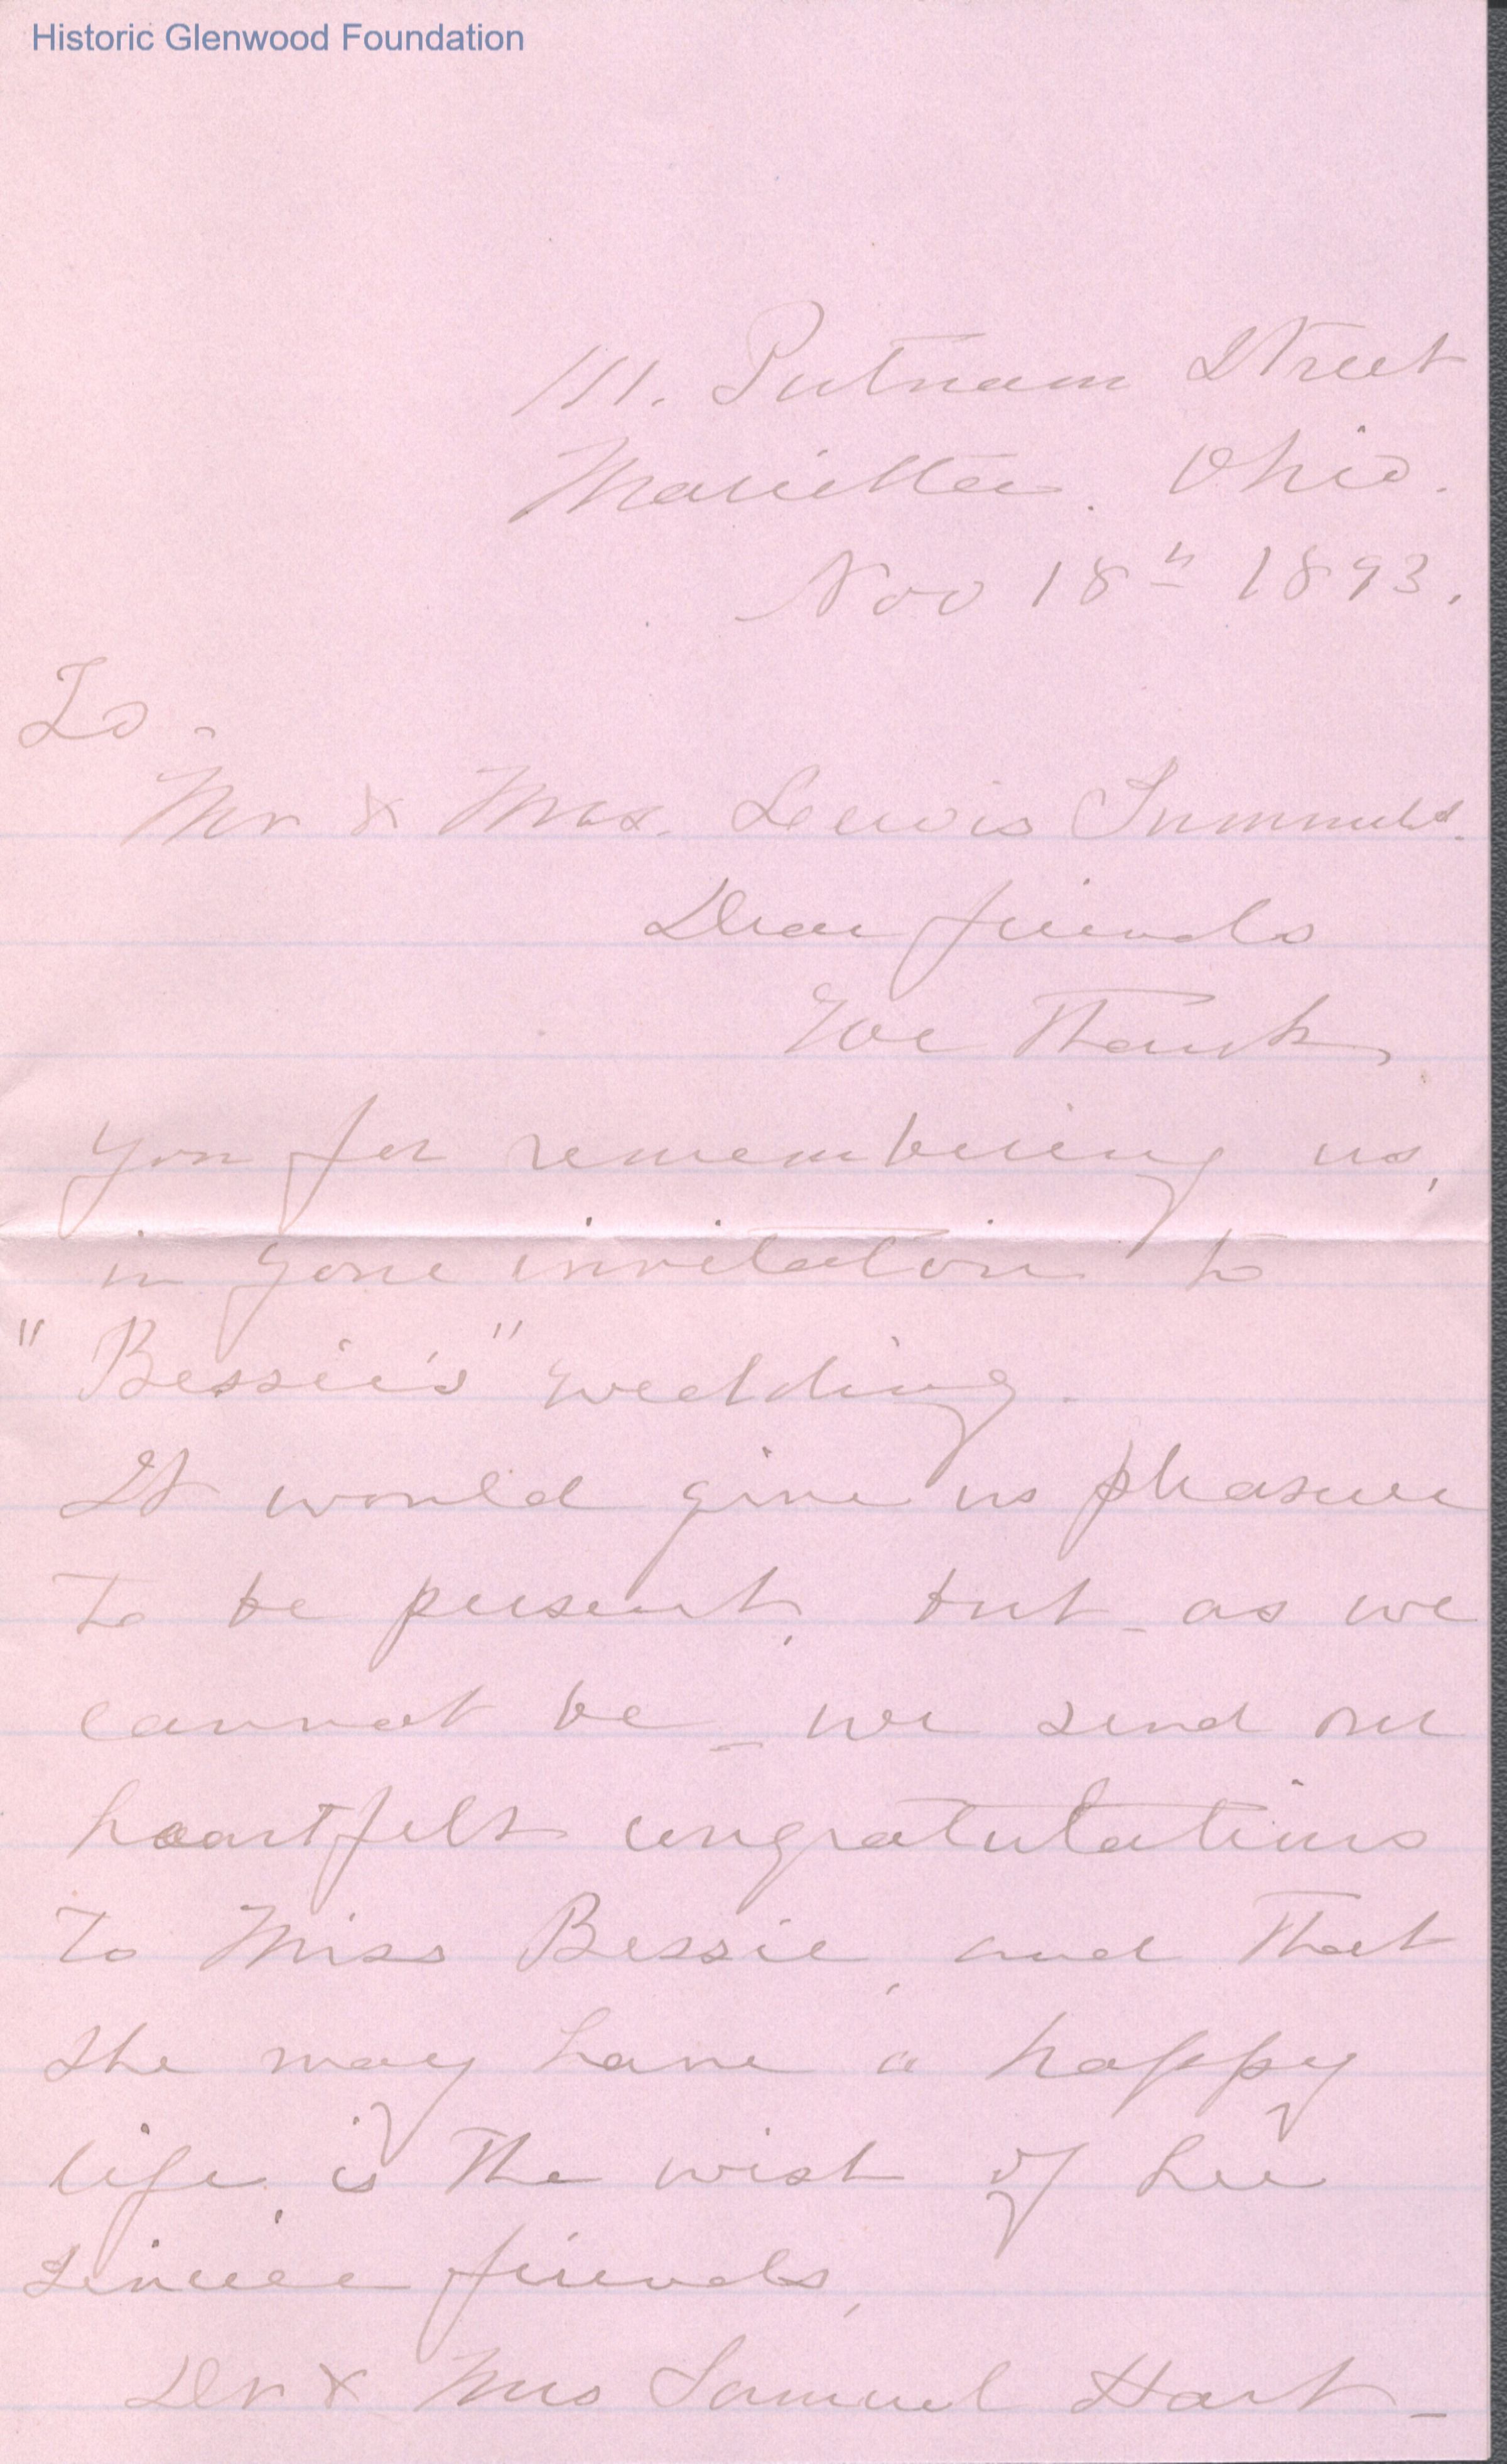 Historic Glenwood Foundation
111. Putnam Street
Marietta. Ohio.
Nov 18th 1893.
To -
Mr & Mrs. Lewis Summers.
Dear friends
We Thank
you for remembering us,
in your invitation to
"Bessie's" wedding.
It would give us pleasure
to be present, but - as we
cannot be - we send our
heartfelt congratulations
to Miss Bessie, and that
she may have a happy
life, is the wish of her
sincere friends,
Dr & Mrs Samuel Hart -